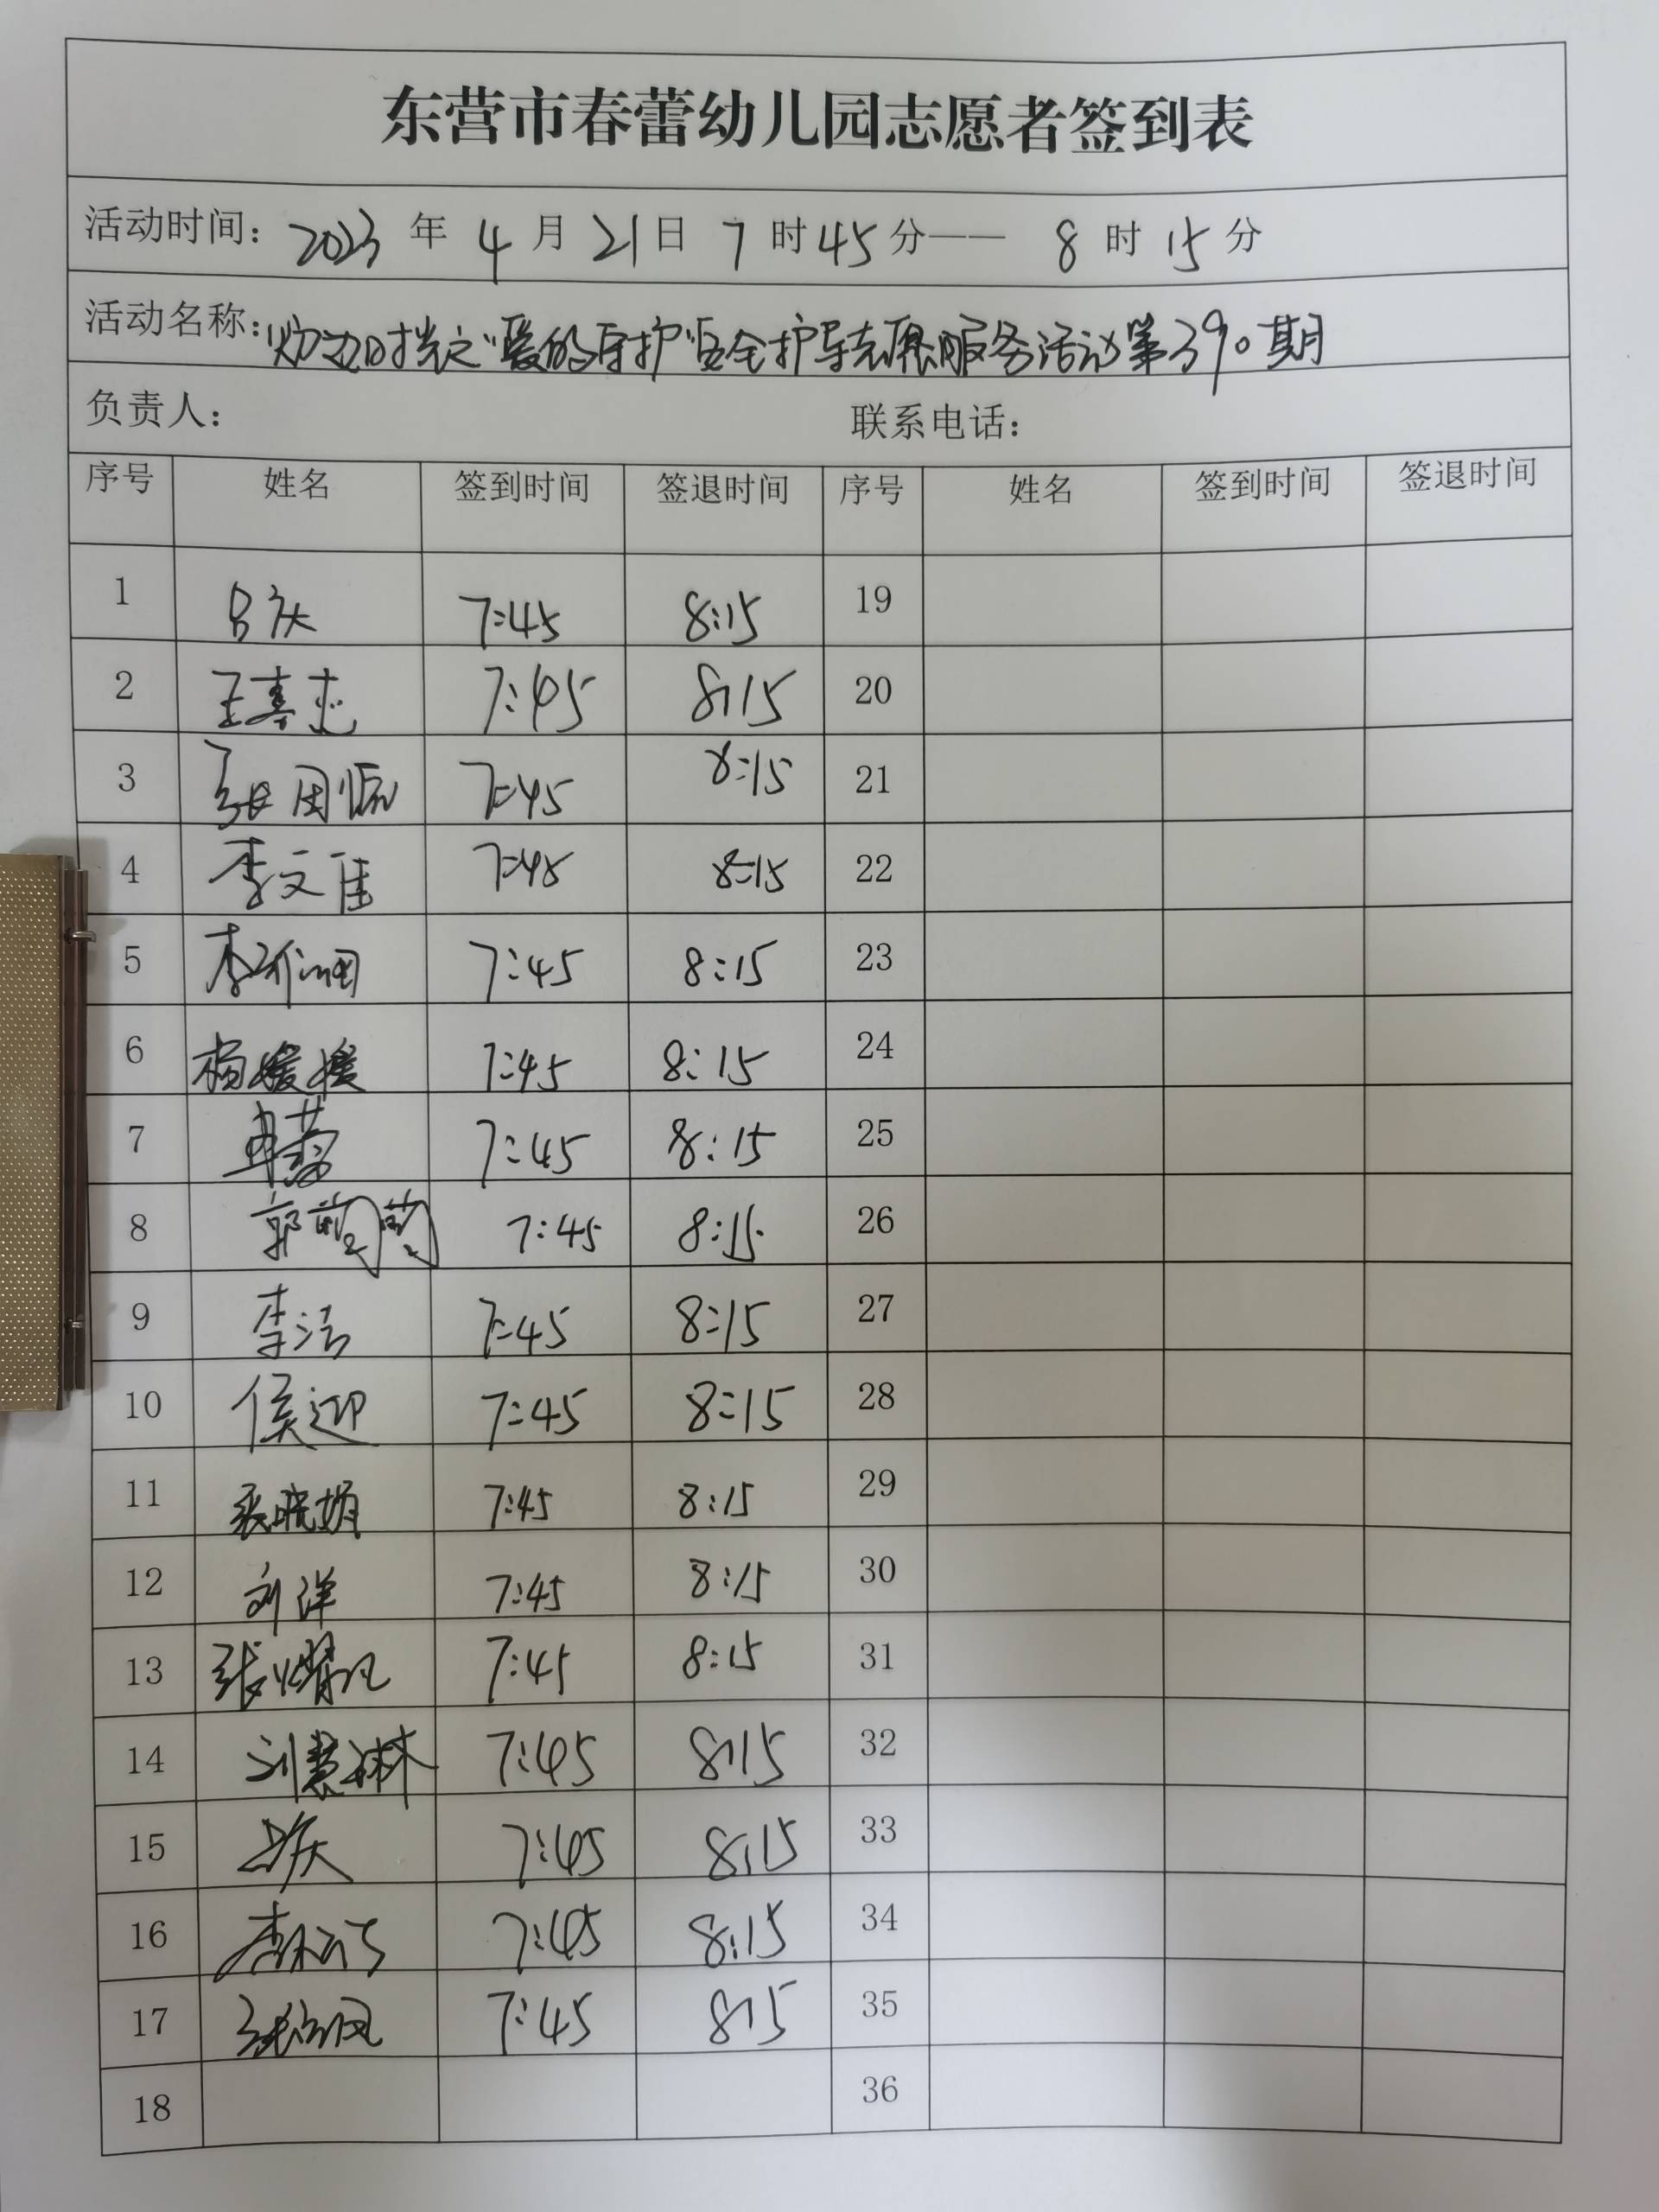 东营市春蕾幼儿园志愿者签到表
活动时间: 2023 年 4 月 21 日 7 时 45 分—— 8 时 15 分
活动名称: 之"爱的守护"安全护导志愿服务活动第390期
负责人: 联系电话:
序号 姓名 签到时间 签退时间 序号 姓名 签到时间 签退时间
1 吕庆 7:45 8:15 19
2 7:45 8:15 20
3 7:45 8:15 21
4 李文佳 7:45 8:15 22
5 7:45 8:15 23
6 杨媛媛 7:45 8:15 24
7 7:45 8:15 25
8 7:45 8:15 26
9 李洁 7:45 8:15 27
10 侯迎 7:45 8:15 28
11 7:45 8:15 29
12 刘洋 7:45 8:15 30
13 7:45 8:15 31
14 刘慧琳 7:45 8:15 32
15 7:45 8:15 33
16 7:45 8:15 34
17 7:45 8:15 35
18 36